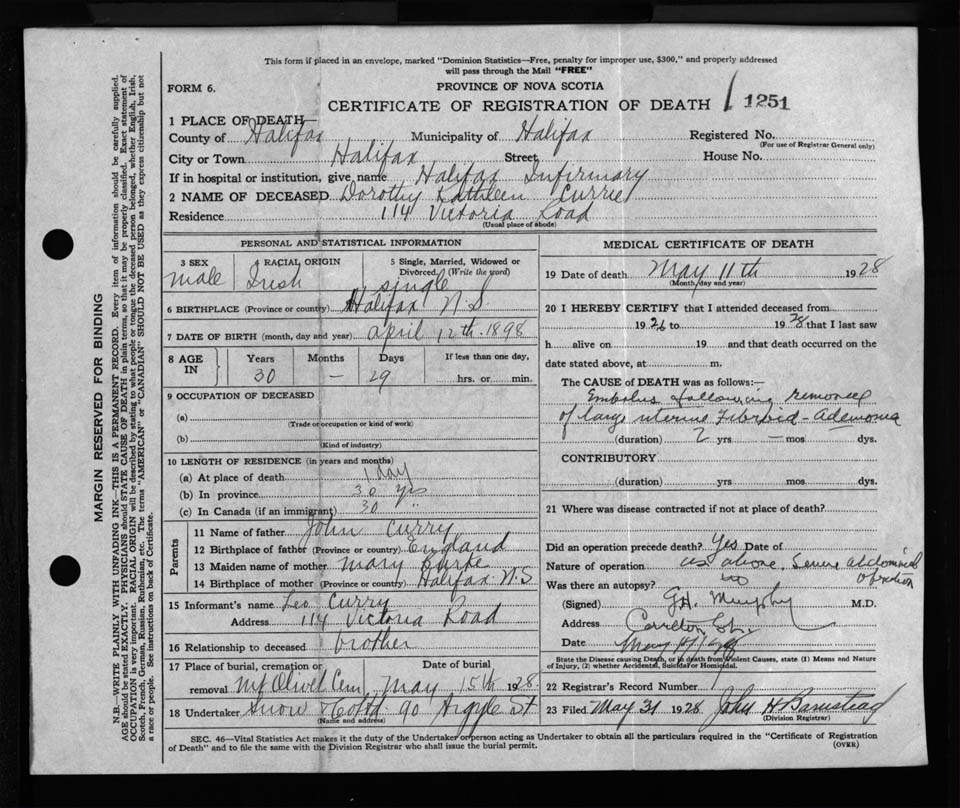 This form if placed in an envelope, marked "Dominion Statistics—Free, penalty for improper use, $300," and properly addressed
will pass through the Mail "FREE"
FORM 6.
PROVINCE OF NOVA SCOTIA
CERTIFICATE OF REGISTRATION OF DEATH 1251
1 PLACE OF DEATH—
County of Halifax Municipality of Halifax Registered No.
(For use of Registrar General only)
City or Town Halifax Street House No.
If in hospital or institution, give name Halifax Infirmary
2 NAME OF DECEASED Dorothy Kathleen Currie
Residence 114 Victoria Road
(Usual place of abode)
PERSONAL AND STATISTICAL INFORMATION
3 SEX 4 RACIAL ORIGIN 5 Single, Married, Widowed or
Divorced, (Write the word)
male Irish single
6 BIRTHPLACE (Province or country) Halifax N.S.
7 DATE OF BIRTH (month, day and year) April 12th 1898
8 AGE IN Years Months Days If less than one day,
30 — 29 hrs. or min.
9 OCCUPATION OF DECEASED
(a)
(Trade or occupation or kind of work)
(b)
(Kind of industry)
10 LENGTH OF RESIDENCE (in years and months)
(a) At place of death 1 day
(b) In province 30 yrs
(c) In Canada (if an immigrant) 30 "
Parents
11 Name of father John Curry
12 Birthplace of father (Province or country) England
13 Maiden name of mother Mary
14 Birthplace of mother (Province or country) Halifax N.S.
15 Informant's name Leo Curry
Address 114 Victoria Road
16 Relationship to deceased brother
17 Place of burial, cremation or Date of burial
removal Mt Olivet Cem May 15th 1928
18 Undertaker Snow 90 Argyle St
(Name and address)
MEDICAL CERTIFICATE OF DEATH
19 Date of death May 11th 1928
(Month, day and year)
20 I HEREBY CERTIFY that I attended deceased from
1926 to 1928 that I last saw
h alive on 19 and that death occurred on the
date stated above, at m.
The CAUSE of DEATH was as follows:—
Embolus following removal
of large uterine Fibroid - Ademonia
(duration) 2 yrs — mos dys.
CONTRIBUTORY
(duration) yrs mos dys.
21 Where was disease contracted if not at place of death?
Did an operation precede death? Yes Date of
Nature of operation as above, Severe abdominal
Was there an autopsy? no
(Signed) G.H. Murphy M.D.
Address Carleton St.
Date May
State the Disease causing Death, or in death from Violent Causes, state (1) Means and Nature
of Injury, (2) whether Accidental, Suicidal or Homicidal.
22 Registrar's Record Number
23 Filed May 31 1928 John H Barnstead
(Division Registrar)
SEC. 46—Vital Statistics Act makes it the duty of the Undertaker or person acting as Undertaker to obtain all the particulars required in the "Certificate of Registration
of Death" and to file the same with the Division Registrar who shall issue the burial permit.
(OVER)
MARGIN RESERVED FOR BINDING
N.B.—WRITE PLAINLY, WITH UNFADING INK—THIS IS A PERMANENT RECORD. Every item of information should be carefully supplied.
AGE should be stated EXACTLY. PHYSICIANS should STATE CAUSE OF DEATH in plain terms, so that it may be properly classified. Exact statement of
OCCUPATION is very important. RACIAL ORIGIN will be described by stating to what people or tongue the deceased person belonged, whether English, Irish,
Scotch, French, German, Russian, Ruthenian, etc. The terms "AMERICAN" or "CANADIAN" SHOULD NOT BE USED as they express citizenship but not
a race or people. See instructions on back of Certificate.